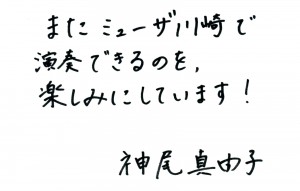 またミューザ川崎で
演奏できるのを、
楽しみにしています！
神尾真由子